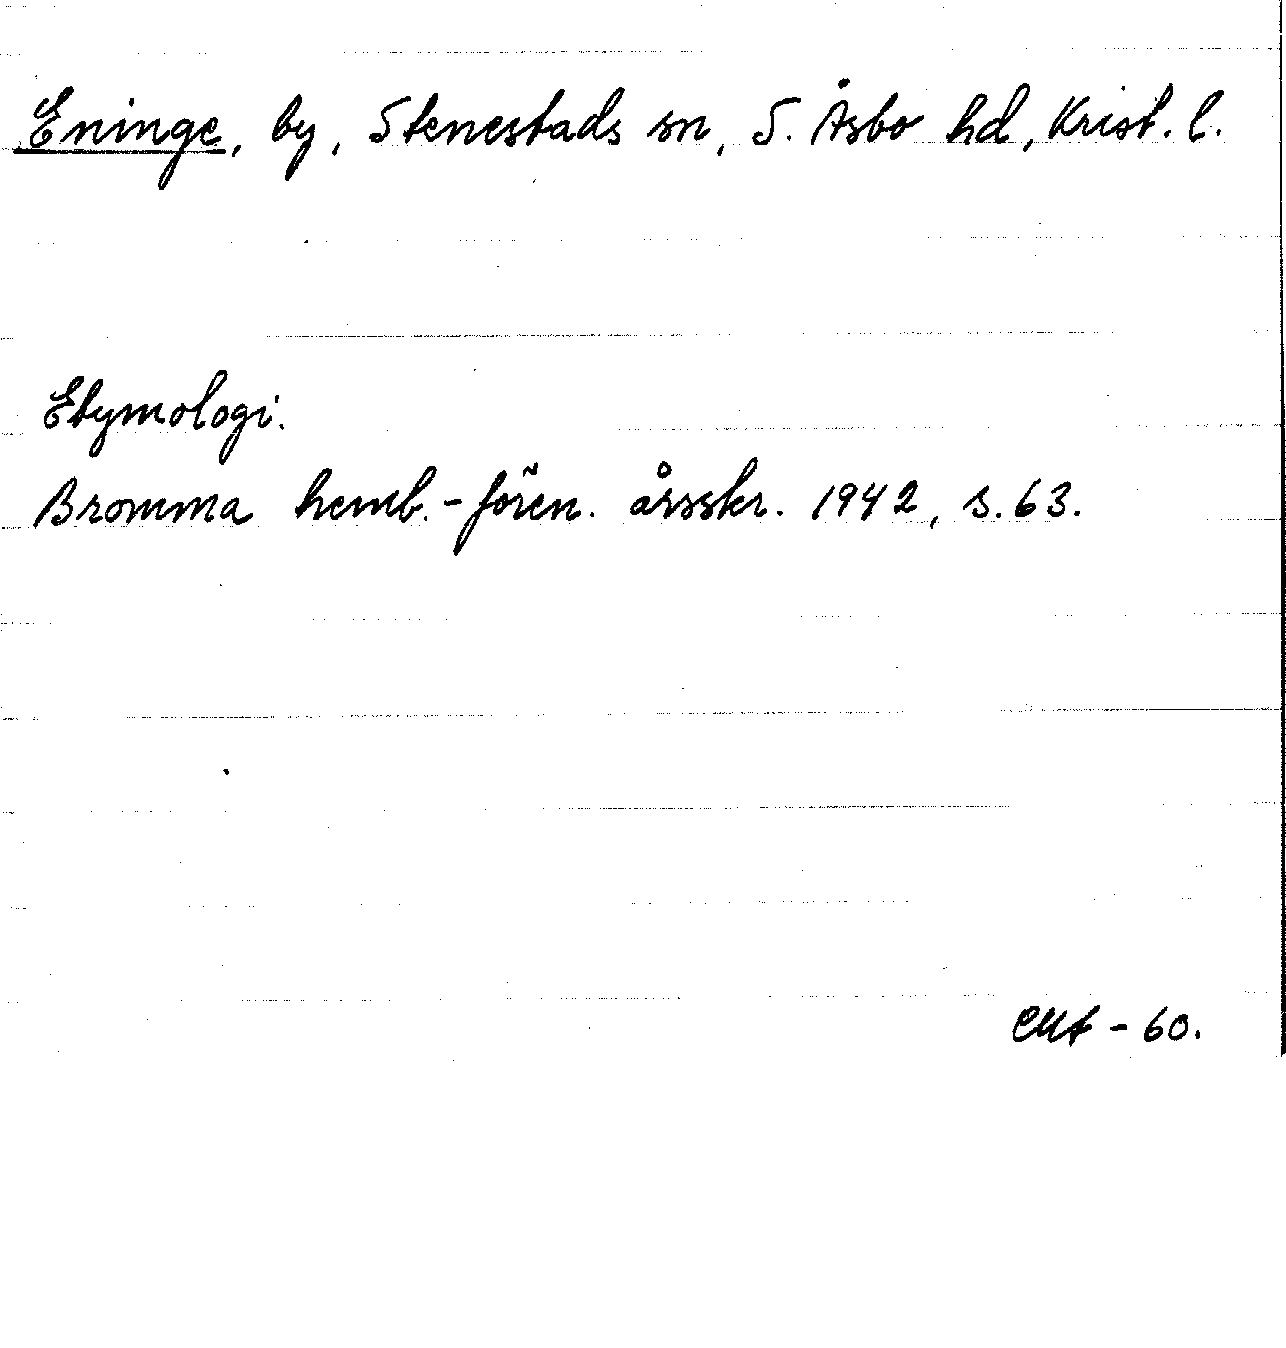 Eninge, by, Stenestads sn, S. Åsbo hd, Krist. l.
Etymologi.
Bromma hemb.-fören. årsskr. 1942, s. 63.
- 60.